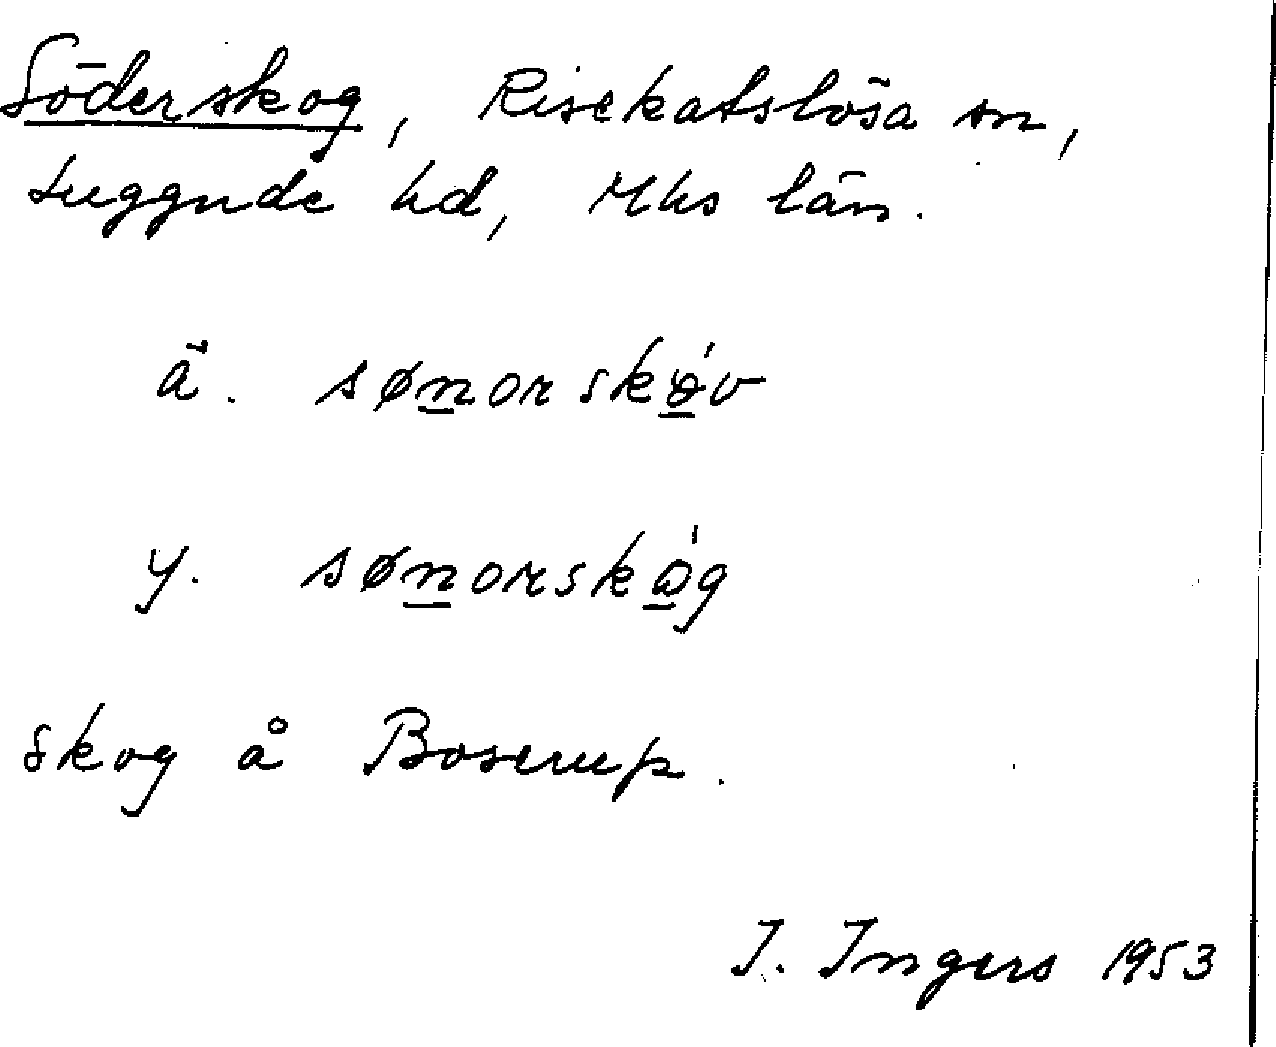 Söderskog, Risekatslösa sn,
Luggude hd, Mhs län.
ä. sønorskǿv
y. sønorskóg
skog å Boserup.
I. Ingers 1953